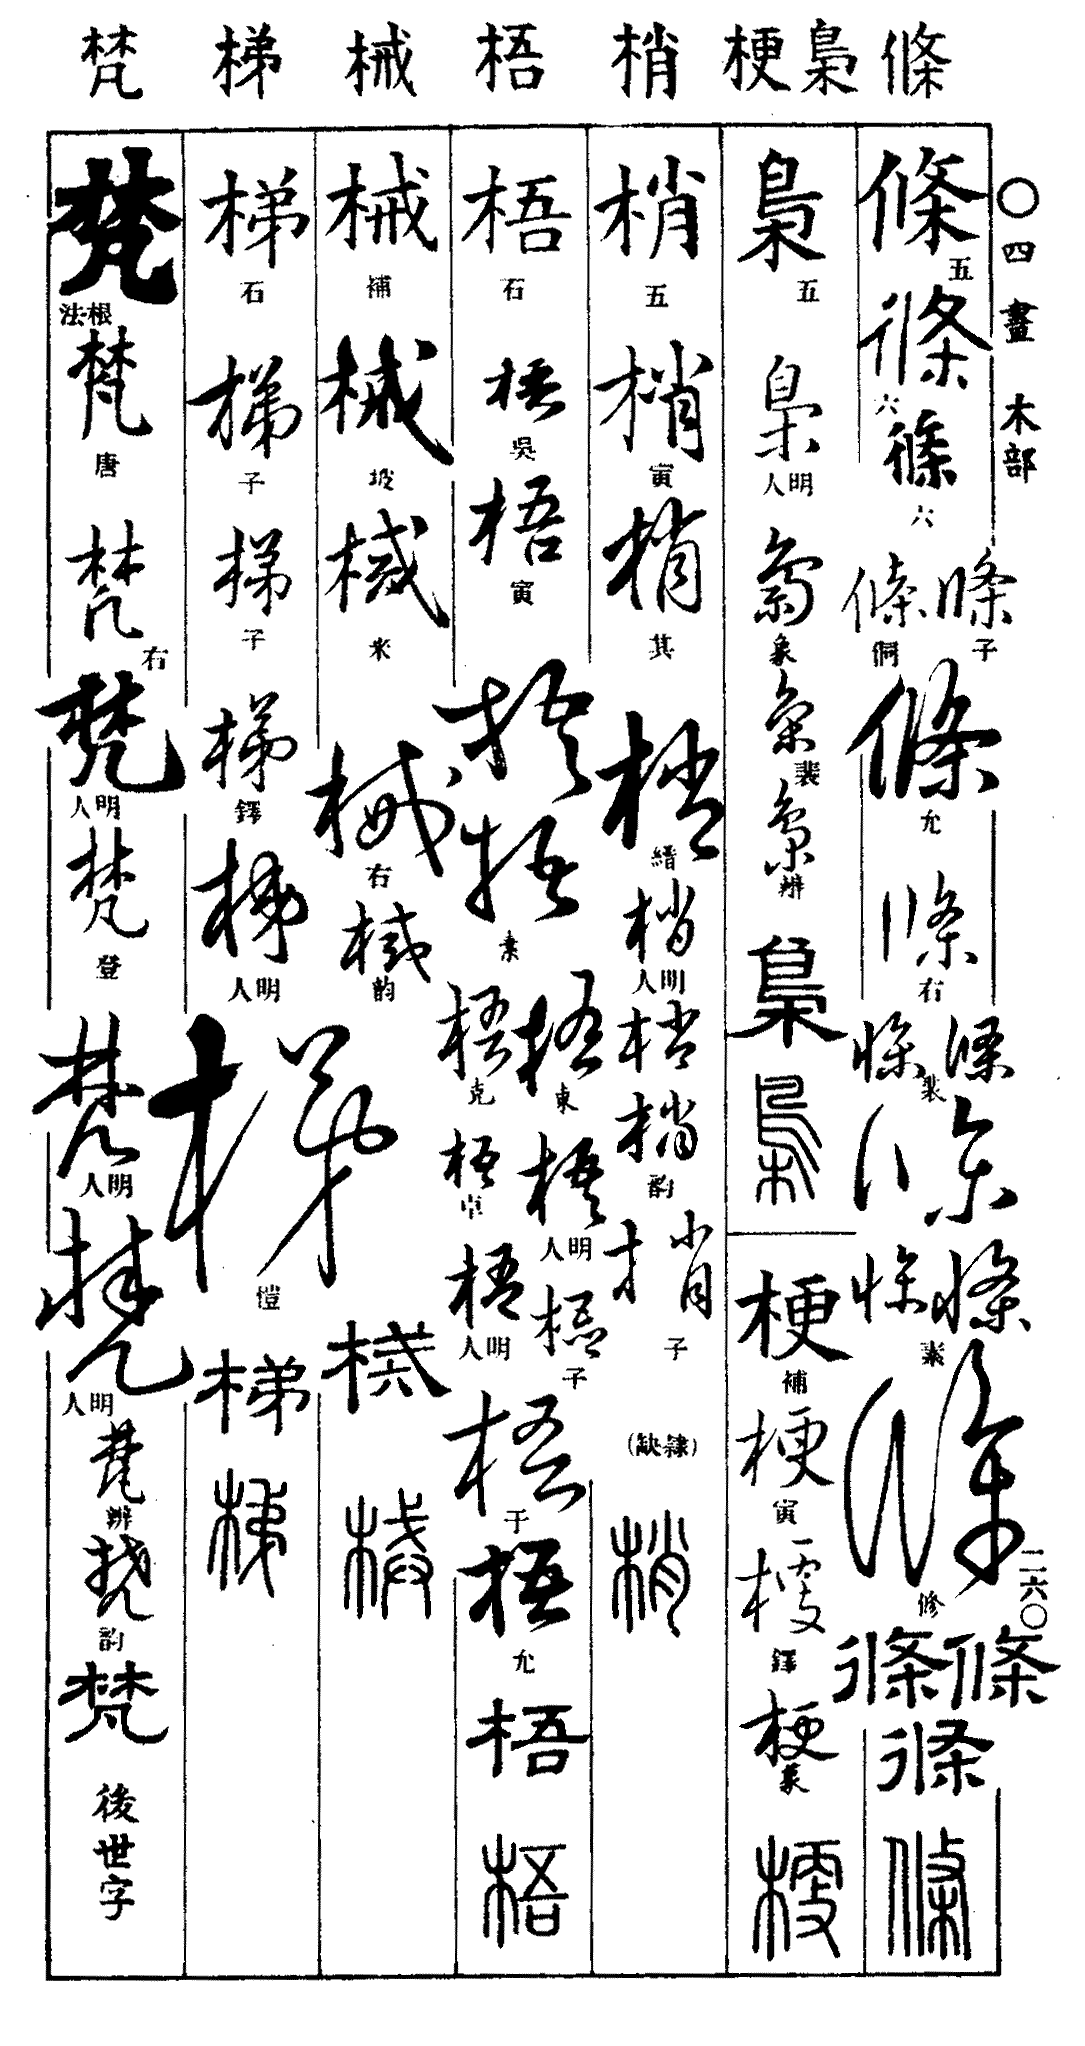 條
梟 梗
梢
梧
械
梯
梵
〇四畫 木部
二六〇
條 五
條 六
條 六
條 子
條 侗
條 允
條 右
條 條 裴
條
條 條 素
條 修
條 條
條
條
梟 五
梟 明人
梟 象
梟 裴
梟 辨
梟
梟
梗 補
梗 寅
梗 鐸
梗 象
梗
梢 五
梢 寅
梢 其
梢 縉
梢 明人
梢
梢 韵
梢 子
(隸缺)
梢
梧 石
梧 吳
梧 寅
梧
梧 素
梧 東
梧 克
梧 明人
梧 卓
梧 子
梧 明人
梧 于
梧 允
梧
梧
械 補
械 坡
械 米
械 右
械 韵
械
械
梯 石
梯 子
梯 子
梯 鐸
梯 明人
梯 愷
梯
梯
梵 根法
梵 唐
梵 右
梵 明人
梵 登
梵 明人
梵 明人
梵 辨
梵 韵
梵
後世字